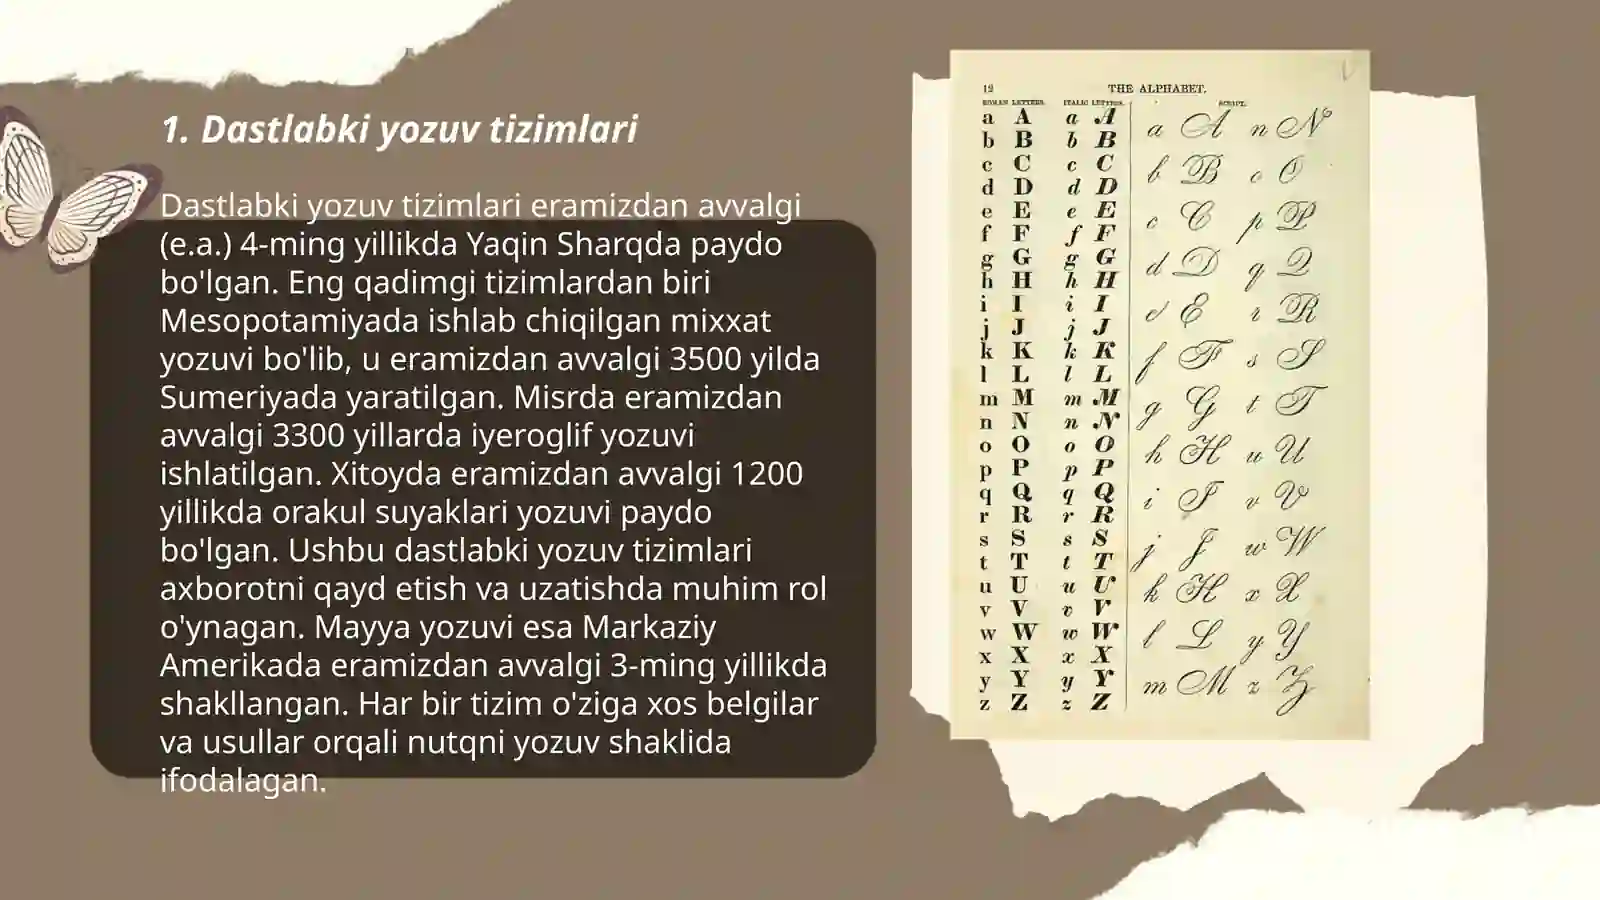 1. Dastlabki yozuv tizimlari
Dastlabki yozuv tizimlari eramizdan avvalgi
(e.a.) 4-ming yillikda Yaqin Sharqda paydo
bo'lgan. Eng qadimgi tizimlardan biri
Mesopotamiyada ishlab chiqilgan mixxat
yozuvi bo'lib, u eramizdan avvalgi 3500 yilda
Sumeriyada yaratilgan. Misrda eramizdan
avvalgi 3300 yillarda iyeroglif yozuvi
ishlatilgan. Xitoyda eramizdan avvalgi 1200
yillikda orakul suyaklari yozuvi paydo
bo'lgan. Ushbu dastlabki yozuv tizimlari
axborotni qayd etish va uzatishda muhim rol
o'ynagan. Mayya yozuvi esa Markaziy
Amerikada eramizdan avvalgi 3-ming yillikda
shakllangan. Har bir tizim o'ziga xos belgilar
va usullar orqali nutqni yozuv shaklida
ifodalagan.
12 THE ALPHABET.
ROMAN LETTERS. ITALIC LETTERS. SCRIPT.
a A a A
b B b B
c C c C
d D d D
e E e E
f F f F
g G g G
h H h H
i I i I
j J j J
k K k K
l L l L
m M m M
n N n N
o O o O
p P p P
q Q q Q
r R r R
s S s S
t T t T
u U u U
v V v V
w W w W
x X x X
y Y y Y
z Z z Z
a A n N
b B o O
c C p P
d D q Q
e E r R
f F s S
g G t T
h H u U
i I v V
j J w W
k K x X
l L y Y
m M z Z